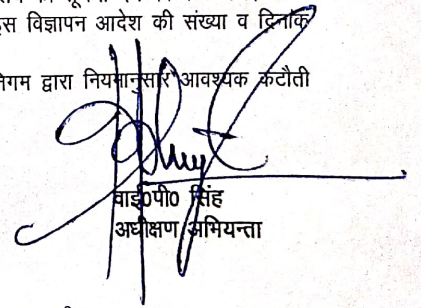 स विज्ञापन आदेश की संख्या व दिनांक
निगम द्वारा नियमानुसार आवश्यक कटौती
वाई0पी0 सिंह
अधीक्षण अभियन्ता